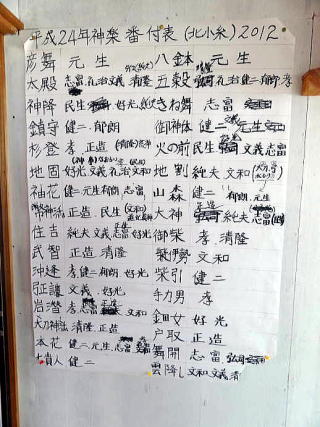 平成24年神楽番付表(北小糸)2012
彦舞 元生
太殿 志富 礼治 文義 清隆
神降 民生 好光
鎮守 健二 郁朗
杉登 孝 正造
地固 好光 文義 礼治 文和
袖花 健二 元生 有朗 志富
正造 民生
住吉 純夫 文義 志富 好光
武智 正造 清隆
沖逢 孝 健二 有朗 好光
文義 好光
岩潜 孝 志富
太刀神添 清隆 正造
本花 健二 元生 志富
大貴人 健二
八鉢 元生
五穀 礼治 健二 有朗 孝
きね舞 志富
御神体 健二 元生
火の前 民生 文義 志富
地割 純夫 文和
山森 健二 有朗 元生
大神 純夫 志富
御柴 孝 清隆
文和
柴引 健二
手力男 孝
鈿女 好光
戸取 正造
舞開 志富
雲降し 文和 文義 清